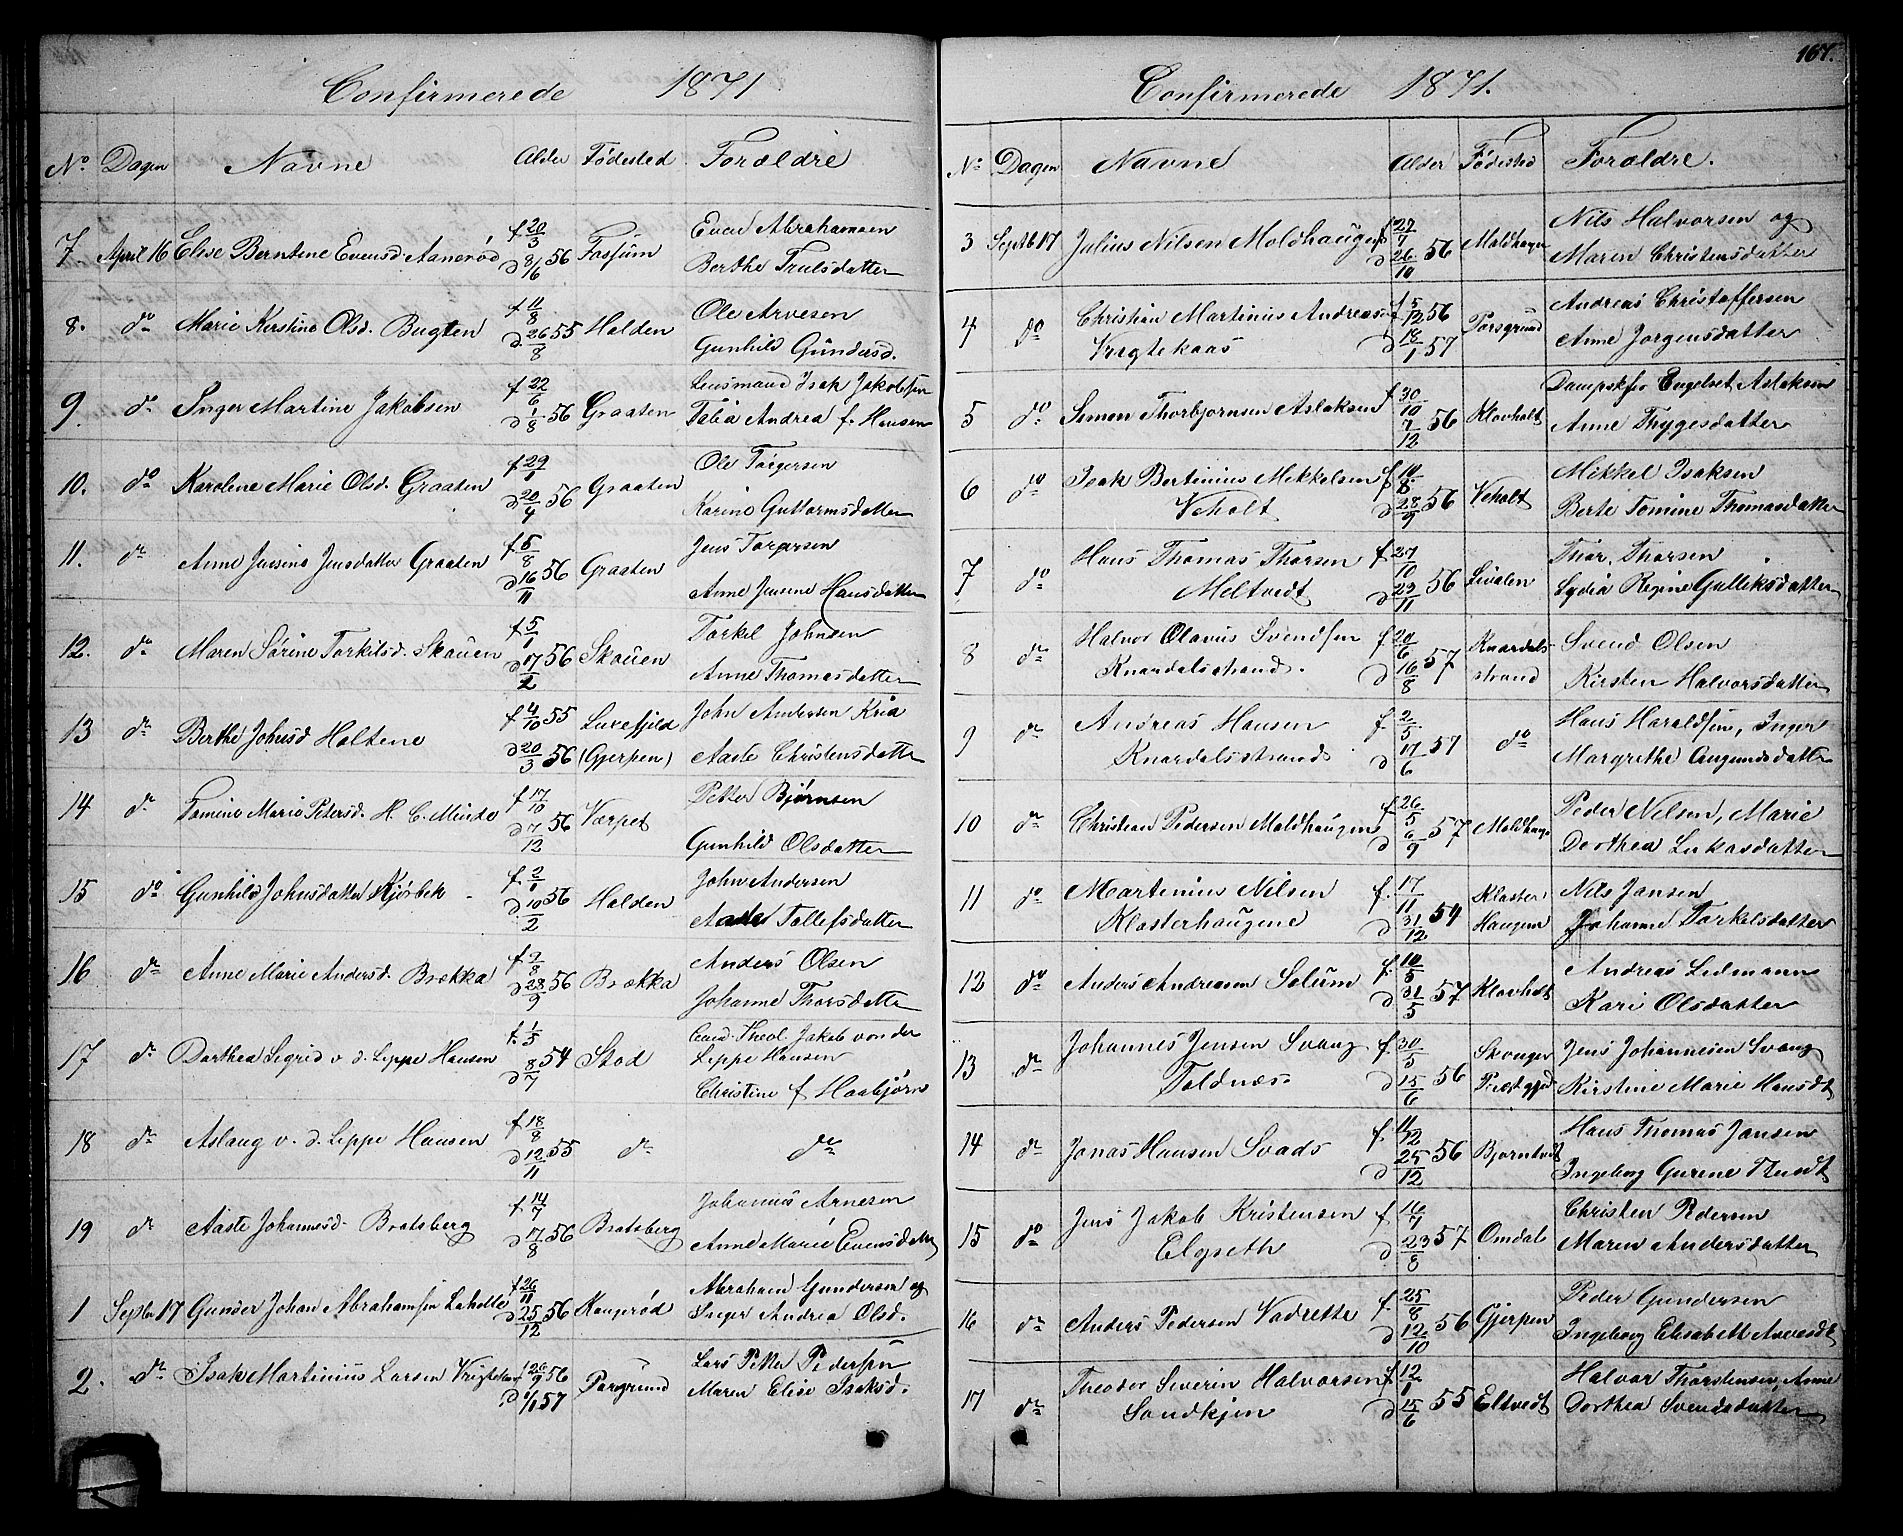 Confirmerede 1871
No. Dagen Navne Alder Fødested Forældre
7. April 16 Elise Berntine Evensd. Aanerød f 20/3 d 8/6 56 Fossum Even Abrahamsen
Berthe Trulsdatter
8. do Marie Kirstine Olsd. Bugten f 11/8 d 26/8 55 Halden Ole Arvesen
Gunhild Gundersd.
9. do Inger Martine Jakobsen f 22/6 d 1/8 56 Graaten Lensmand Isak Jakobsen
Tobia Andrea f. Hansen
10. do Karoline Marie Olsd. Graaten f 29/1 d 20/4 56 Graaten Ole Torgersen
Karine Guttormsdatter
11. do Anne Jensine Jensdatter Graaten f 5/8 d 16/11 56 Graaten Jens Torgersen
Anne Jensine Hansdatter
12. do Maren Sørine Torkilsd. Skouen f 5/1 d 17/2 56 Skouen Torkel Johnsen
Anne Thomasdatter
13 do Berthe Johnsd Holtene f 4/10 55 d 20/3 56 Luxefjeld (Gjerpen) John Andersen Kria
Aaste Christensdatter
14 do Tomine Marie Petersd. H. C. Minde f 17/10 d 7/12 56 Værpet Petter Bjørnsen
Gunhild Olsdatter
15 do Gunhild Johnsdatter Kjørbek f. 2/1 d 10/2 56 Halden John Andersen
Aaste Tollefsdatter
16 do Anne Marie Andersd. Brekka f 2/8 d 28/9 56 Brækka Anders Olsen
Johanne Thorsdatter
17 do Dorthea Sigrid v. d. Lippe Hansen f. 1/5 d 8/7 54 Stod Cand. Theol Jakob von der
Lippe Hansen
Christine f Haabjørn
18 do Aslaug v. d. Lippe Hansen f 18/8 d 12/11 55 do do
19 do Aaste Johannesd. Bratsberg f 14/7 d 17/8 56 Bratsberg Johannes Arnesen
Anne Marie Evensdatter
1 Septbr 17 Gunder Johan Abrahamsen Laholte f 26/11 d 25/12 56 Kaaperød Abraham Gundersen og
Inger Andrea Olsd.
2. do Isak Martinius Larsen f 26/9 56 d 1/1 57 Porsgrund Lars Petter Pedersen
Maren Elise Isaksd.
167.
Confirmerede 1871.
No Dagen Navne Alder Fødested Forældre.
3 Septb 17 Julius Nilsen Moldhaugen f 27/7 d 26/10 56 Moldhagen Nils Halvorsen og
Maren Christensdatter
4 do Christian Martinius Andreasen f 5/12 56 Porsgrund Andreas Christoffersen
Vragtekaas d 18/1 57 Anne Jorgensdatter
5 do Simon Thorbjornsen Aslaksen f. 30/10 7/12 56 Klovholt Dampskfør Engelset Aslaksen
Anne Thygesdatter
6 do Isak Bertinius Mikkelsen f 10/8 d 28/9 56 Veholt Mikkel Isaksen
Veholt Berte Tomine Thomasdatter
7 do Hans Thomas Thorsen f. 27/10 d 29/11 56 Livalen Thor Thorsen
Meltvedt Lydia Regine Gulliksdatter
8 do Halvor Olavus Svendsen f. 20/6 d 16/8 57 Knardalsstrand Svend Olsen
Knardalsstrand. Kirsten Halvorsdatter
9 do Andreas Hansen f. 2/5 d 17/6 57 do Hans Haraldsen, Inger
Knardalsstrand Margrethe Augundsdatter
10 do Christian Pedersen Moldhaugen f. 26/5 d 6/9 57 Moldhagn Peder Nilsen, Marie
Dorthea Lukasdatter
11 do Martinius Nilsen f. 17/11 d 31/12 54 Kloster Nils Jansen
Klosterhaugene Haugene Johanne Torkelsdatter
12 do Anders Andreasen Solum f. 10/5 d 31/5 57 Klovholt Andreas Ledmann
Kari Olsdatter
13 do Johannes Jensen Svang f. 30/5 d 15/6 56 Skonger Jens Johannesen Svang
Toldnæs Præstgjeld Kirstine Marie Hansdt
14 do Jonas Hansen Svads f. 11/12 d 25/12 56 Bjorntvedt Hans Thomas Jansen
Ingeborg Gurine
15 do Jens Jakob Kristensen f 16/7 d 23/8 57 Omdal Christen Pedersen
Elgseth Maren Andersdatter
16 do Anders Pedersen Vadrette f. 25/8 d 12/10 56 Gjerpen Peder Gundersen
Ingeborg Elisabeth
17 do Theodor Severin Halvorsen f 12/1 d 15/6 55 Eltvedt Halvor Thorstensen, Anne
Sandkjen Dorthea Svendsdatter